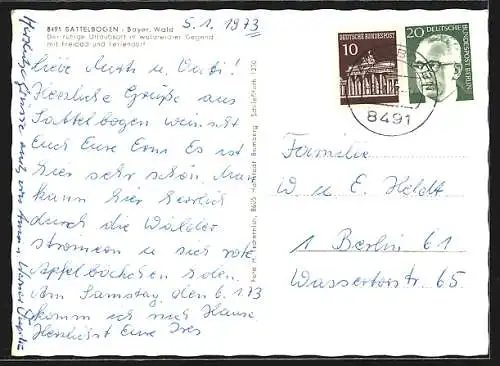 8491 SATTELBOGEN · Bayer. Wald
Der ruhige Urlaubsort in waldreicher Gegend
mit Freibad und Feriendorf
5.1.1973
Liebe Mutti u. Vati!
Herzliche Grüße aus
Sattelbogen wünscht
Euch Eure Es ist
hier sehr schön. Man
kann hier herrlich
durch die Wälder
stromern u sich rote
Apfelbäckchen holen.
Am Samstag, den 6.1.73
komm ich nach Hause.
Herzlichst Eure
Herzliche Grüsse auch von
Foto H. Hallstadt Bamberg
10 DEUTSCHE BUNDESPOST
20 DEUTSCHE BUNDESPOST BERLIN
8491
Familie
W u E. Heldt
1 Berlin 61
Wassertorstr 65